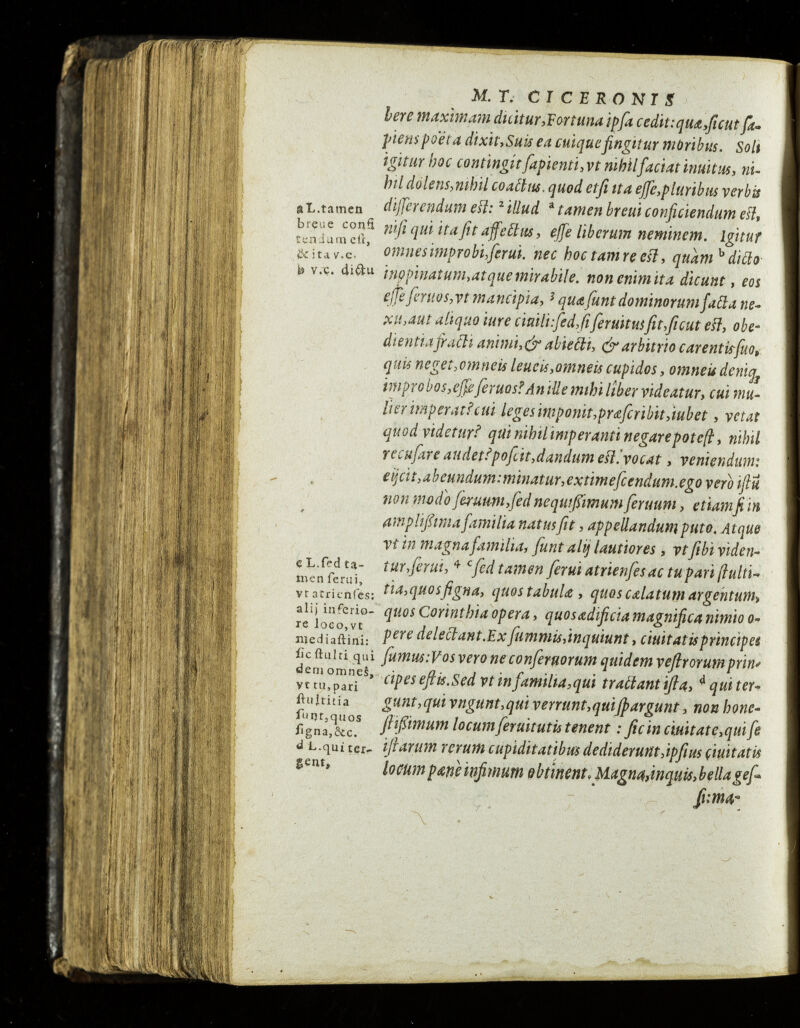 M. T. CICERONIS
bere maximam dicitur,Fortuna ipsa cedit:quæ,sicut sa-
piens poëta dixit,Suis ea cuique fingitur moribus. Soli
igitur hoc contingit sapienti,vt nihil faciat inuitus, ni-
hil dolens,nihil coactus. quod etsi ita esse,pluribus verbis
disserendum est: ² illud ª tamen breui conficiendum est,
nisi qui ita sit affectus, esse liberum neminem. Igitur
omnes improbi,serui. nec hoc tam re est, quàm ᵇ dicto
inopinatum,atque mirabile. non enim ita dicunt, eos
esse seruos,vt mancipia, ³ quæ sunt dominorum facta ne-
xu,aut aliquo iure ciuili:sed,si seruitus sit,sicut est, obe-
dientia fracti animi,& abiecti, & arbitrio carentis suo,
quis neget,omneis leueis,omneis cupidos, omneis deniq,
improbos,esse seruos?An ille mihi liber videatur, cui mu-
lier imperat?cui leges imponit,præscribit,iubet, vetat
quod videtur? qui nihil imperanti negare potest, nihil
recusare audet?poscit,dandum est.vocat, veniendum:
eijcit,abeundum:minatur,extimescendum.ego verò istū
non modò seruum,sed nequissimum seruum, etiam si in
amplissima familia natus sit, appellandum puto. Atque
vt in magna familia, sunt alij lautiores, vt sibi viden-
tur,serui, ⁴ ᶜsed tamen serui atrienses ac tu pari stulti-
tia,quos signa, quos tabulæ, quos cælatum argentum,
quos Corinthia opera, quos ædificia magnifica nimio o-
pere delectant.Ex summis,inquiunt, ciuitatis principes
sumus:Vos vero ne conseruorum quidem vestrorum prin-
cipes estis.Sed vt in familia,qui tractant ista, ᵈ qui ter-
gunt,qui vngunt,qui verrunt,qui spargunt, non hone-
stissimum locum seruitutis tenent : sic in ciuitate,qui se
istarum rerum cupiditatibus dediderunt,ipsius ciuitatis
locum pæne infimum obtinent. Magna,inquis,bella ges-
si:ma-
a L.tamen
breue confi
tendum est,
& ita v.c.
b v.c. dictu
c L.sed ta-
men serui,
vt atrienses:
alij inferio-
re loco,vt
mediastini:
sic stulti qui
dem omnes,
vt tu,pari
stultitia
sunt,quos
signa,&c.
d L.qui ter-
gent,